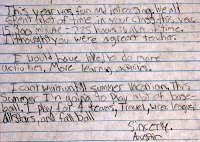 This year was fun and relaxing. We all
spent lots of time in your class this year.
13,500 minutes = 225 hours is alot of time.
I thought you were a great teacher.
I would have liked to do more
activities. More learning activities.
I cant wait until summer vacation. This
summer I'm going to play lots of base-
ball. I play for 4 teams, Travel, wree league,
All Stars, and fall ball.
Sincerly,
Austin